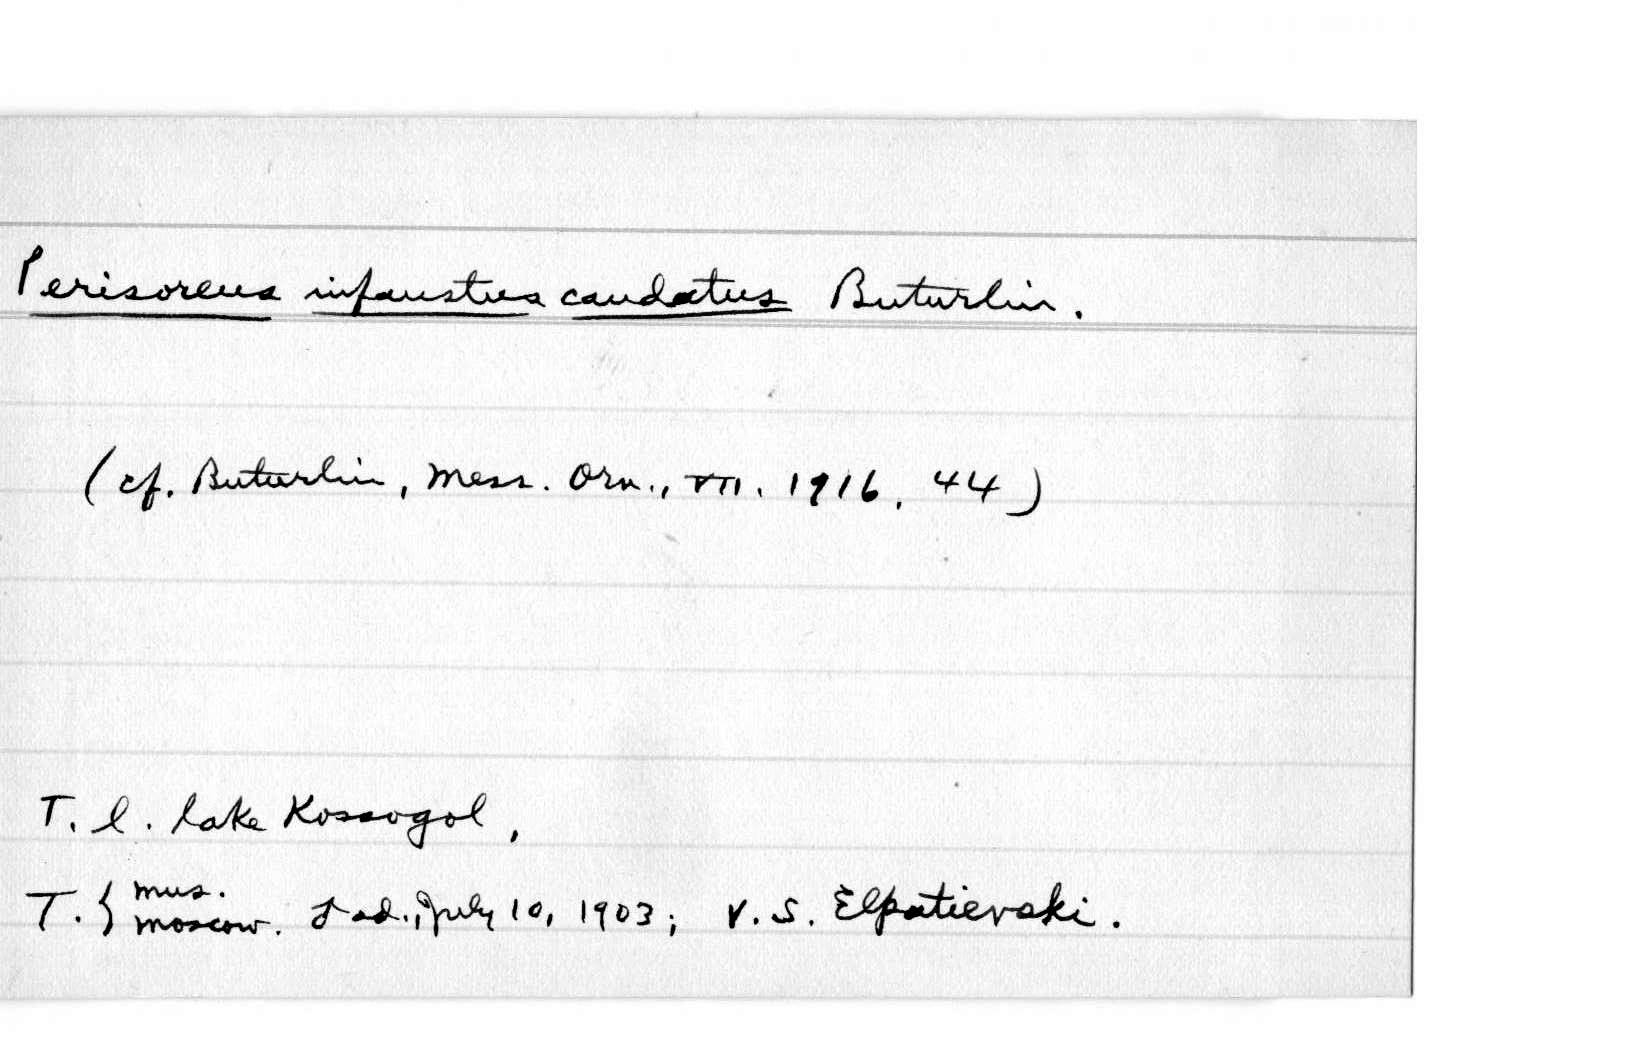 Perisoreus infaustus caudatus Buturlin.
(cf. Buturlin, Mess. Orn., VII. 1916, 44)
T. l. Lake Kossogol,
T. { mus. moscow. ad., July 10, 1903; V. S. Elpatievski.